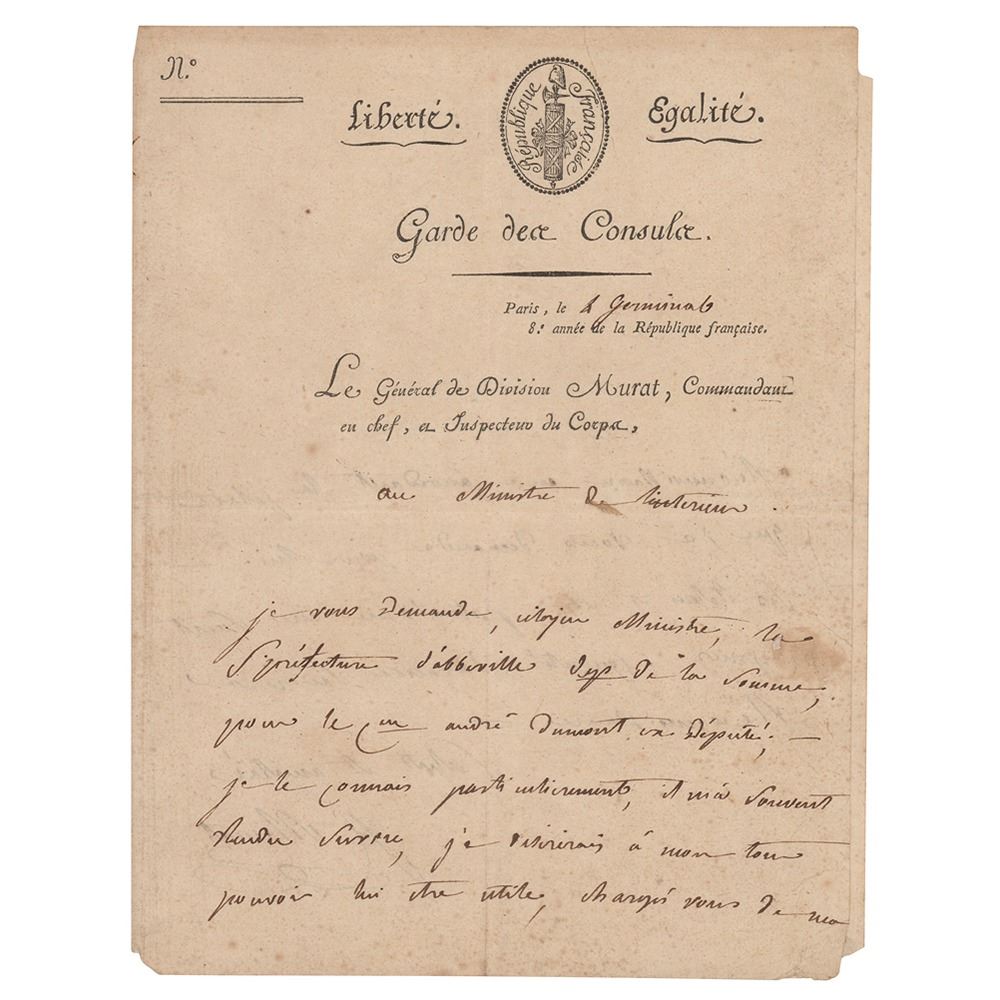 N.°
Liberté. République Française Egalité.
Garde des Consuls.
Paris, le Germinal
8.e année de la République française.
Le Général de Division Murat, Commandant
en chef, et Inspecteur du Corps,
au Ministre de linterieur.
je vous demande, citoyen Ministre, la
S/préfecture d'abbeville dept de la Somme,
pour le cen andré Dumont ex Député; —
je le connais particulierement, il m'a souvent
rendu service, je desirerais à mon tour
pouvoir lui etre utile, chargés vous de ma